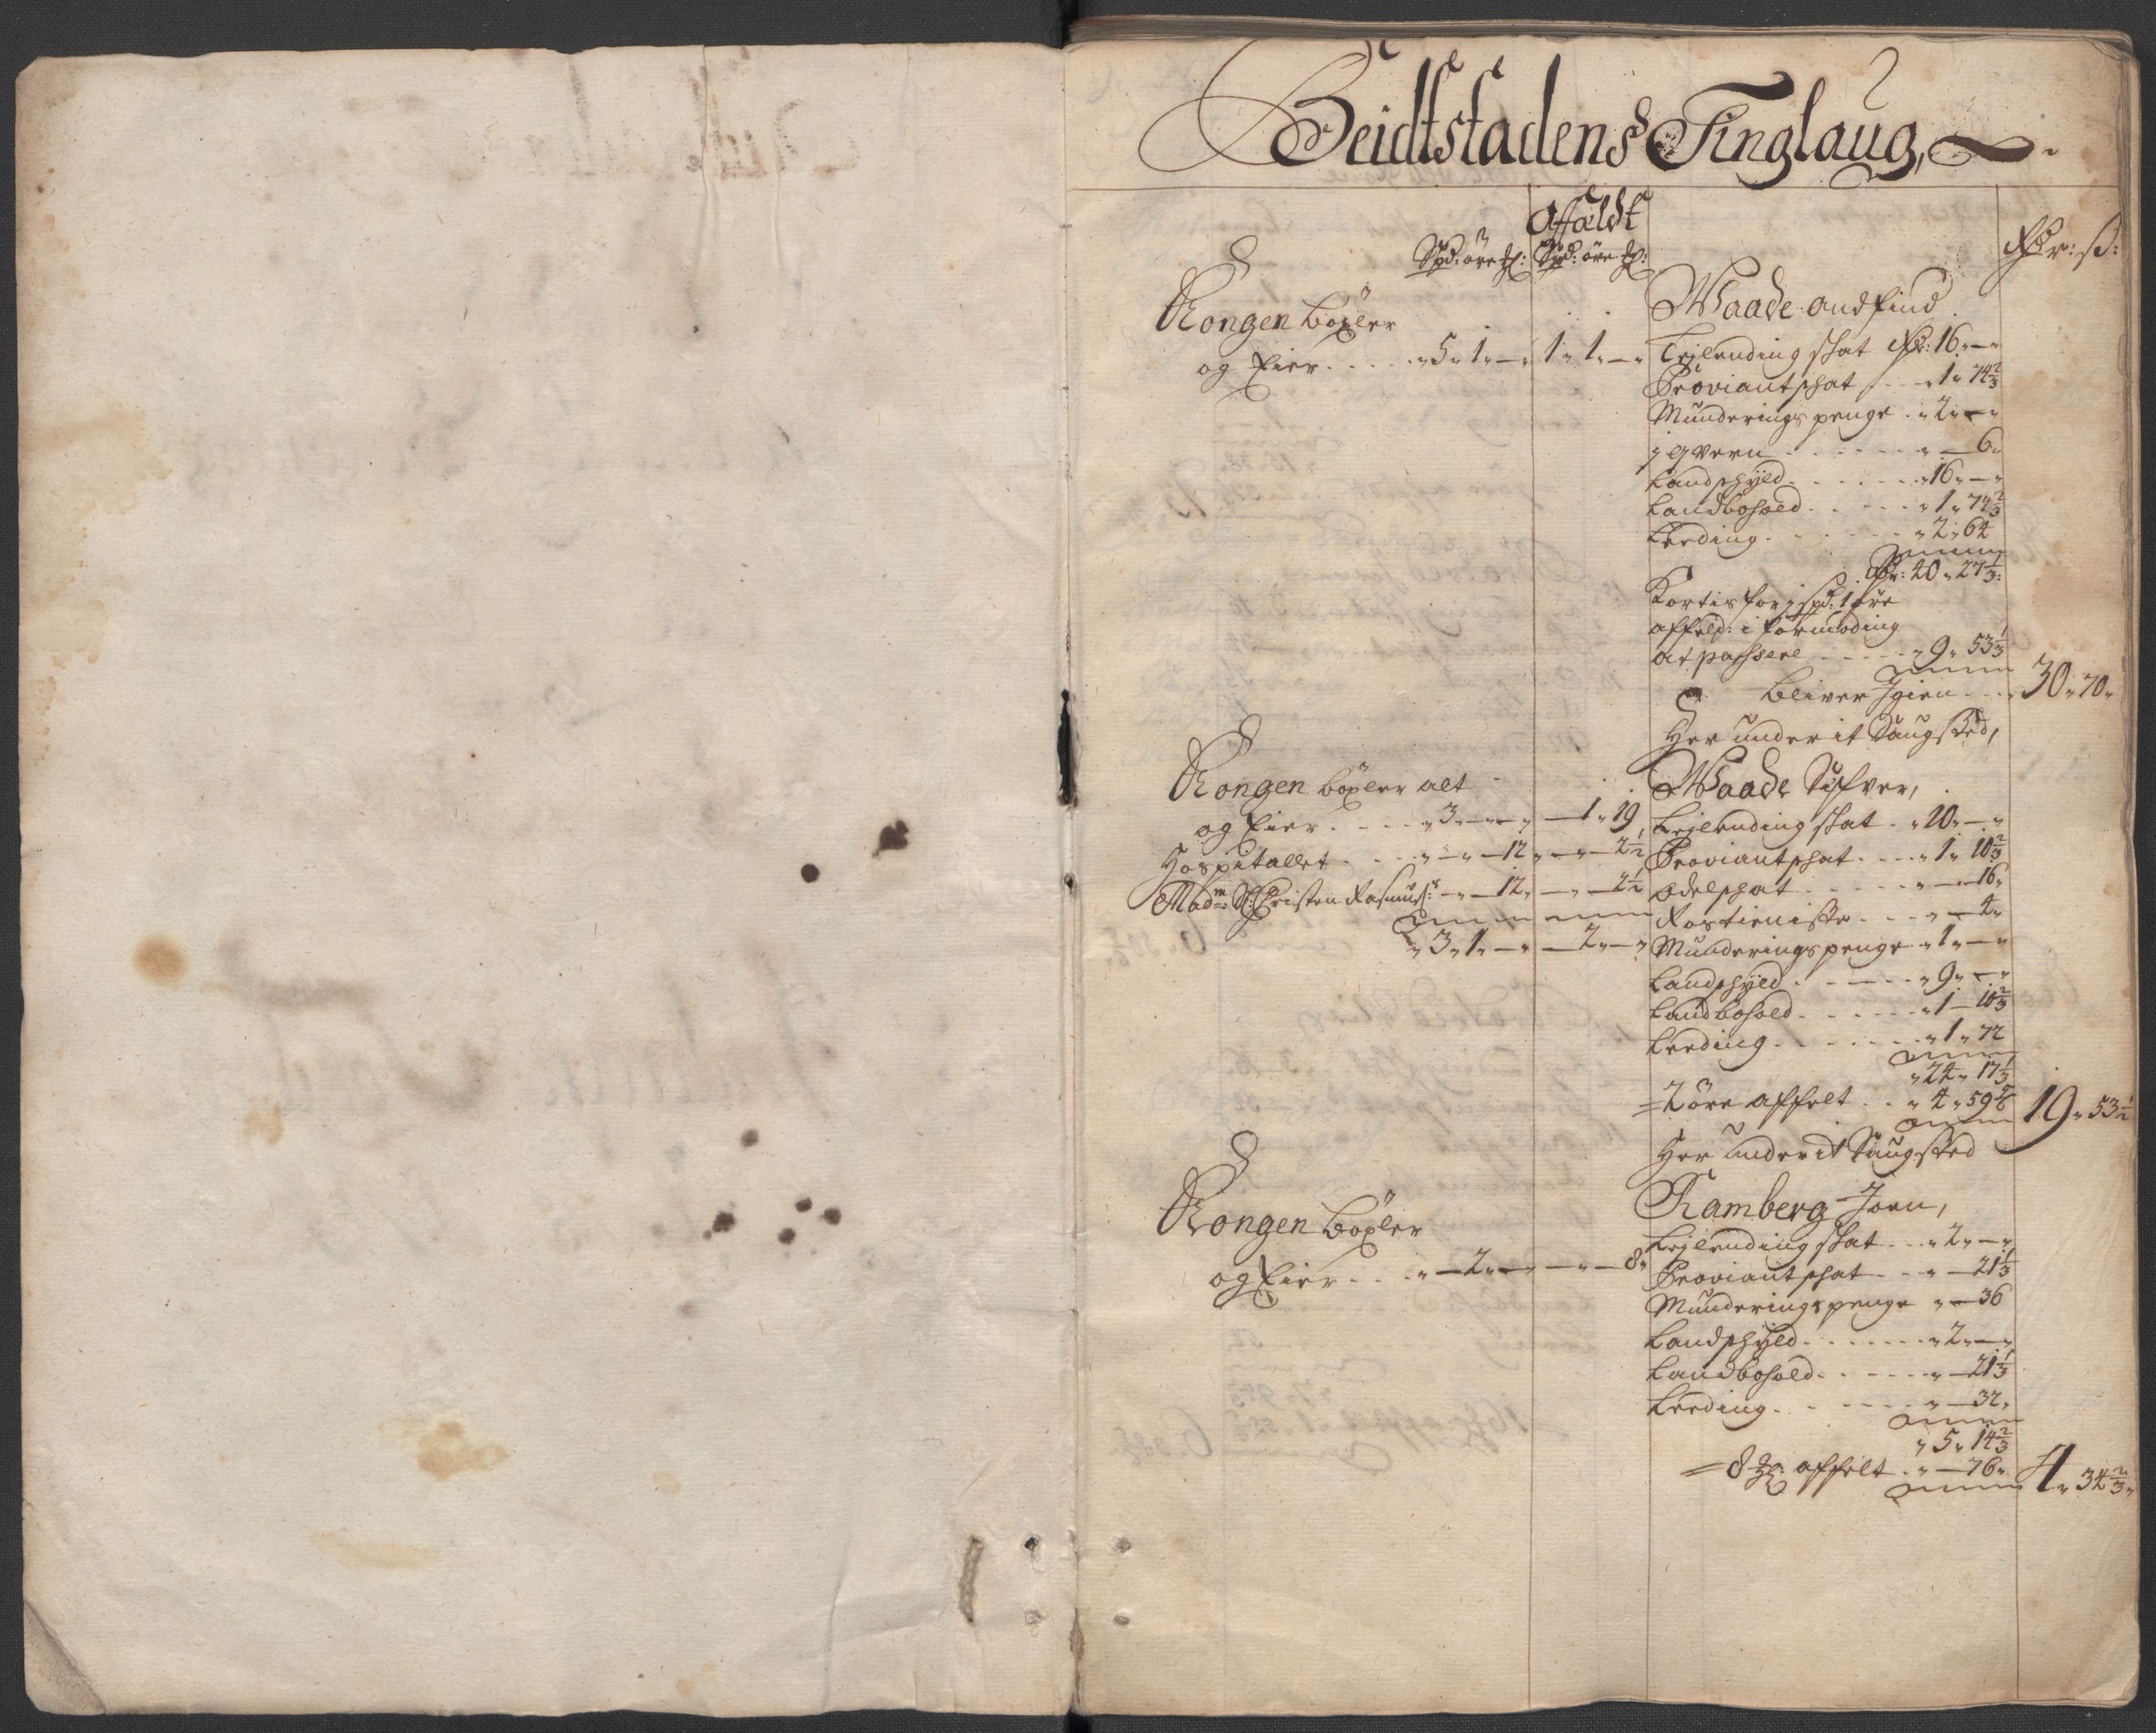 Beidtstadens Tinglaug,
Affäldt
Spd: öre : Spd: öre :
Rdr: ß:
Kongen böxler
og Eier . . . . „5„1„—„ 1„1„—„
Waade Andfind
Lejlending skat Rdr: 16„—„
Proviantskat . . . „1„74 2/3
Munderings penge . „2„—„
. . . . . . „—6„
Landskyld . . . . . . „16„—„
Landbohold . . . . . „1„74 2/3
Leeding . . . . . . „2„64
Rdr: 40„27 1/3:
Kortis for 1 spd: 1 öre
affeld: i formoding
at passere . . . . „9„53 1/3
bliver Igien . . . 30„70„
Her under it Saugsted,
Kongen böxler alt
og Eier . . . . „3„—„—„ —1„19
Hospitallet . . . . „—„—12„ —„—2 1/2
Mad: Sl: Christen Rasmus: „—„—12„ —„—2 1/2
„3„1„—„ —2„—„
Waade Sifver,
Lejlending skat . „10„—„
Proviantskat . . . . „1„10 2/3
Odelskat . . . . . . „—16„
Rostieniste . . . . „—4„
Munderings penge „1„—„
Landskyld . . . . . „9„—„
Landbohold . . . . . . „1—10 2/3
Leeding . . . . . . . „1„72
„24„17 1/3
2 öre affelt . . „4„59 5/6 19„53 1/2
Her under it Saugsted
Kongen böxler
og Eier . . . „—2„—„ —„—8„
Ramberg Joen,
Lejlending skat . . . „2„—„
Proviantskat . . . „—21 1/3
Munderings penge „—36
Landskyld . . . . . . „2„—„
Landbohold . . . . . „—21 1/3
Leeding . . . . . . „—32„
„5„14 2/3
8 affelt . „—76„ 4„34 2/3„